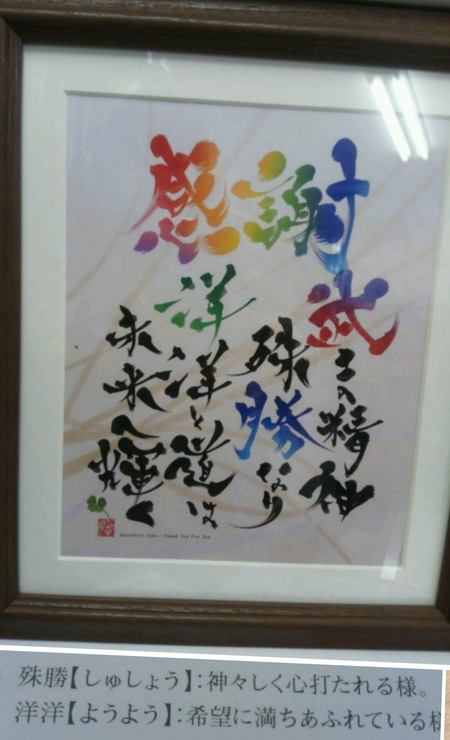 感謝
武士の精神
殊勝なり
洋洋と道は
未来へ輝く
Thank You For You
殊勝【しゅしょう】：神々しく心打たれる様。
洋洋【ようよう】：希望に満ちあふれている様